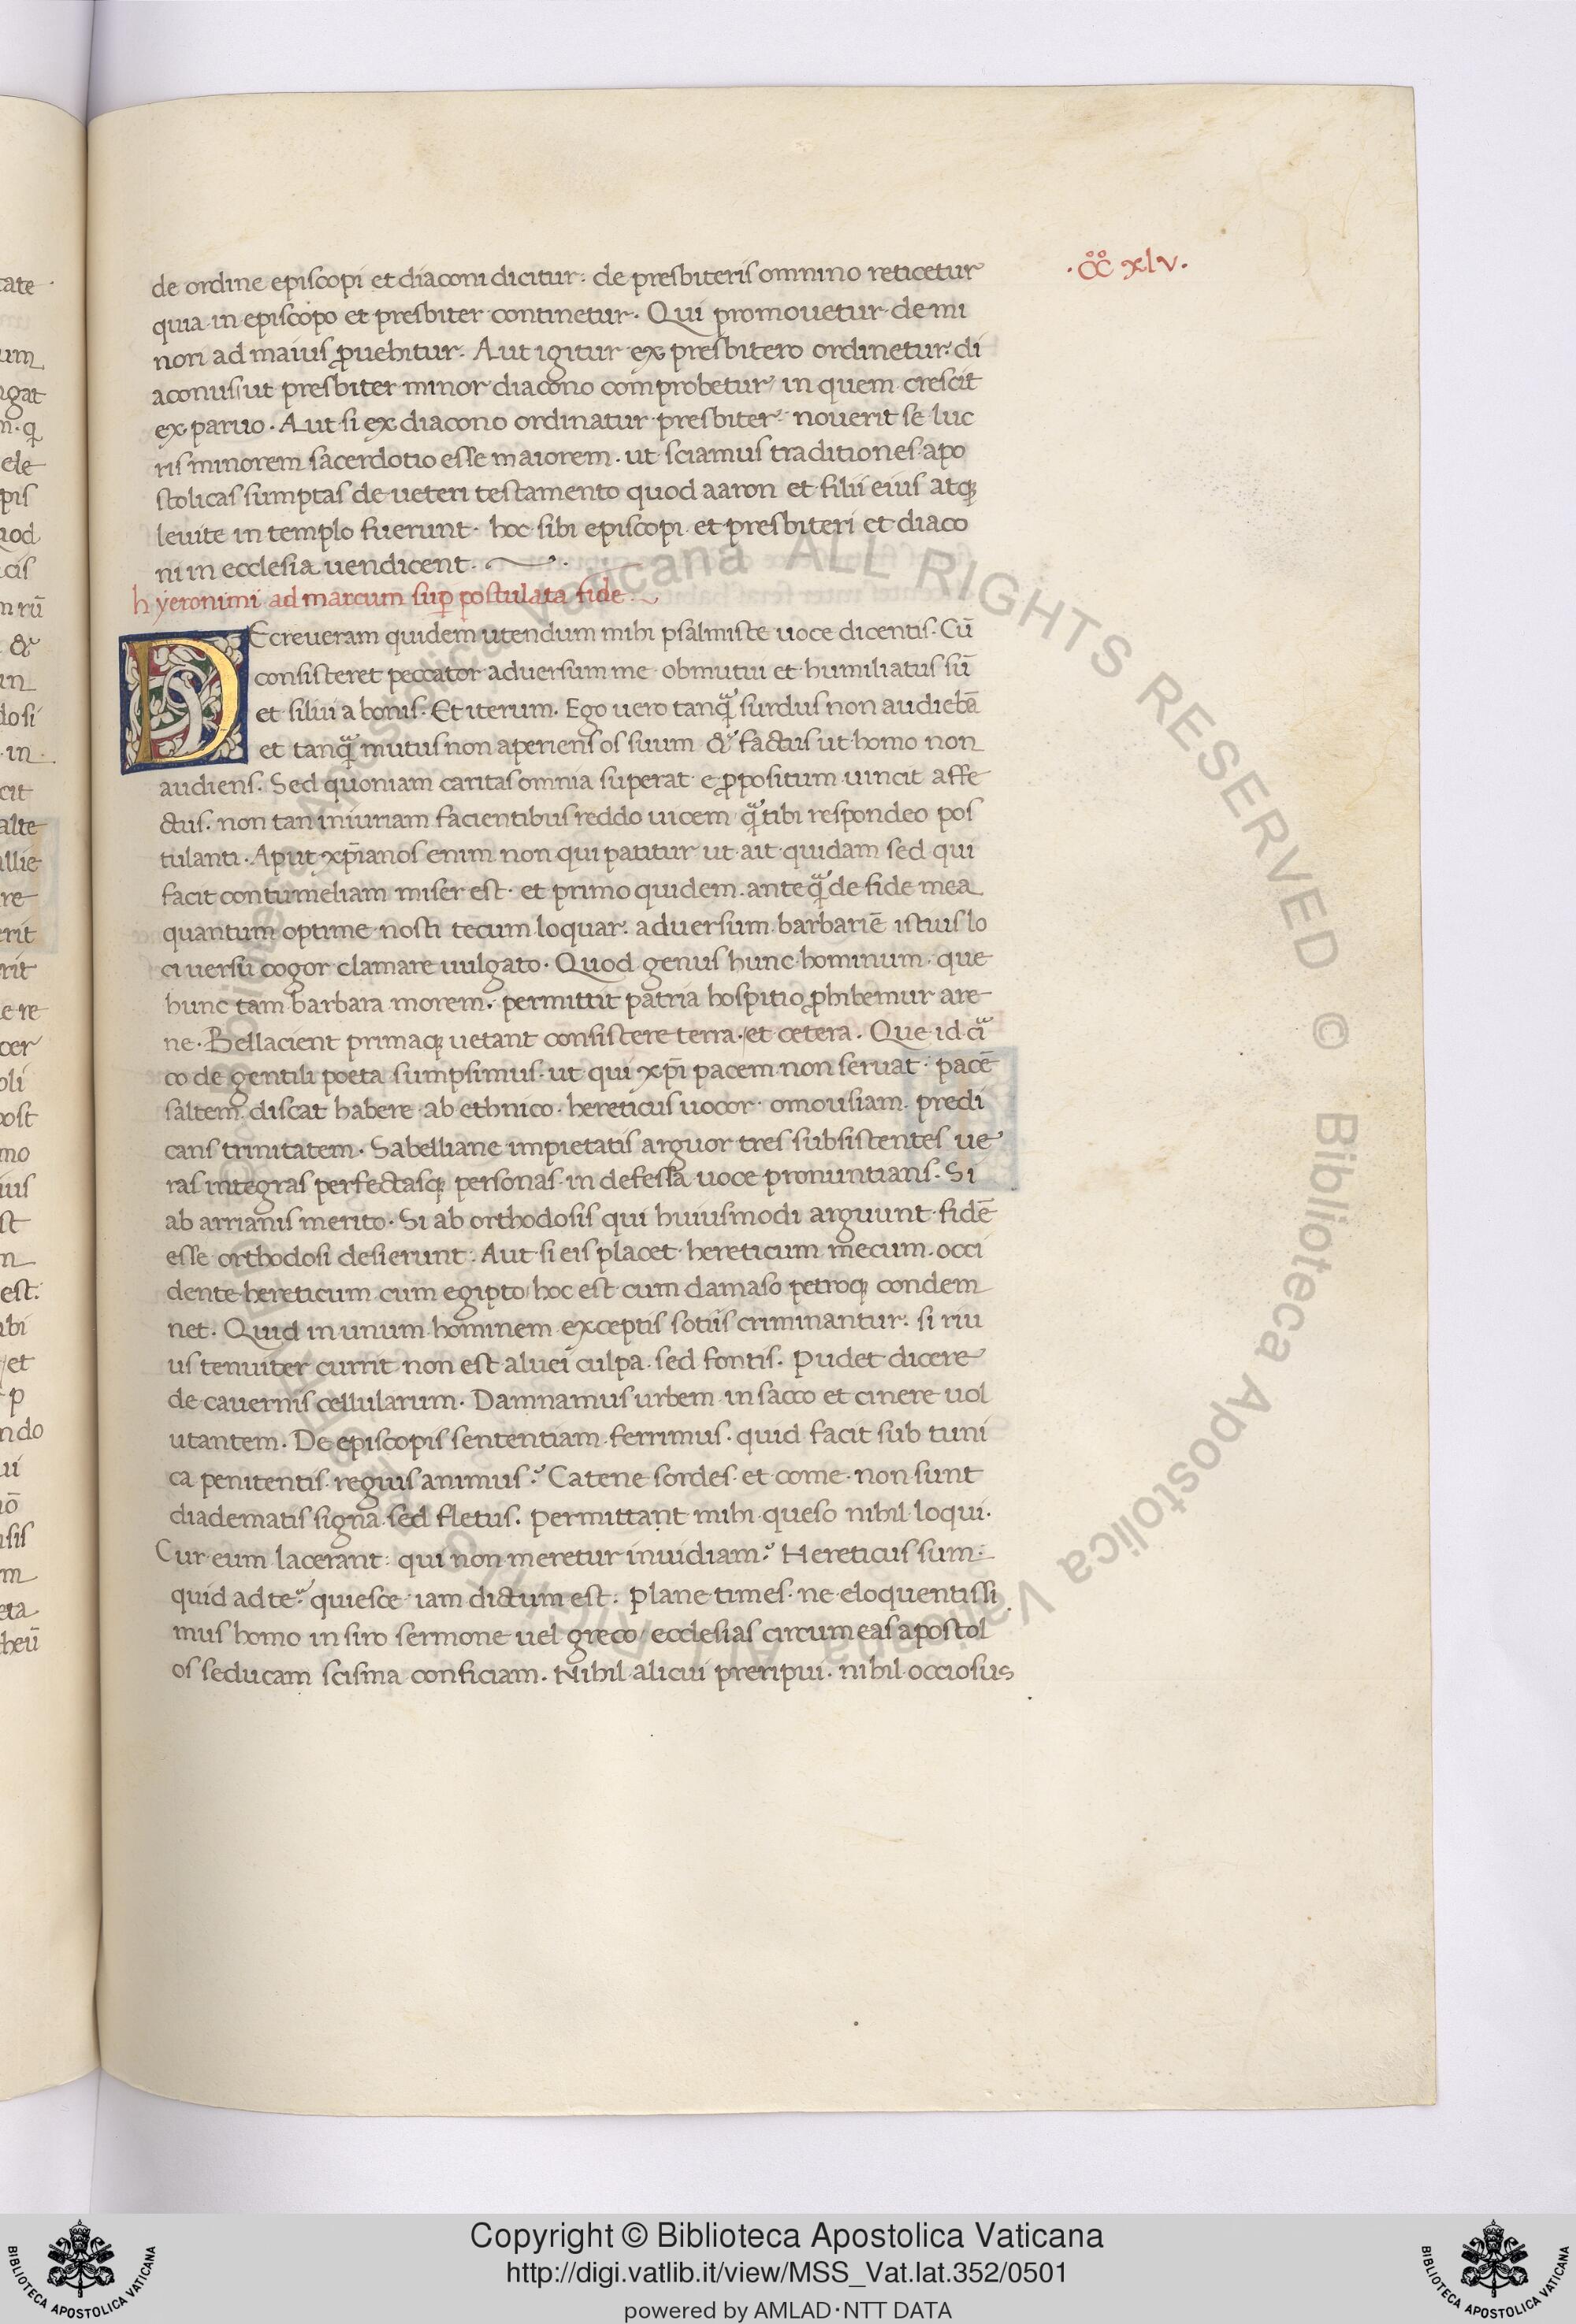 ·cc̊c̊ xlv·
de ordine episcopi et diaconi dicitur: de presbiteris omnino reticetur
quia in episcopo et presbiter continetur. Qui promovetur de mi
nori ad maius ꝓuehitur. Aut igitur ex presbitero ordinetur di
aconus ut presbiter minor diacono comprobetur in quem crescit
ex paruo. Aut si ex diacono ordinatur presbiter nouerit se luc
ris minorem sacerdotio esse maiorem. ut sciamus traditiones apo
stolicas sumptas de ueteri testamento quod aaron et filii eius atqꝫ
leuite in templo fuerunt. hoc sibi episcopi et presbiteri et diaco
ni in ecclesia uendicent.
hyeronimi ad marcum suꝑ postulata fide
DEcreueram quidem utendum mihi psalmiste uoce dicentis. Cū
consisteret peccator adversum me obmutui et humiliatus sū
et silui a bonis. Et iterum. Ego uero tanꝗᷓ surdus non audiebā
et tanꝗᷓ mutus non aperiens os suum & factus ut homo non
audiens. Sed quoniam caritas omnia superat e ꝓpositum uincit affe
ctus. non tan iniuriam facientibus reddo uicem ꝗᷓ tibi respondeo pos
tulanti. Aput xp̄ianos enim non qui patitur ut ait quidam sed qui
facit contumeliam miser est. et primo quidem. anteꝗᷓ de fide mea
quantum optime nosti tecum loquar. adversum barbariē istius lo
ci uersu cogor clamare uulgato. Quod genus hunc hominum. que
hunc tam barbara morem. permittit patria hospitio ꝓhibemur are
ne. Bella cient primaqꝫ uetant consistere terra. et cetera. Que idciᷓ
co de gentili poeta sumpsimus. ut qui xp̄i pacem non seruat. pacē
saltem discat habere ab ethnico. hereticus uocor omousiam predi
cans trinitatem. Sabelliane impietatis arguor tres subsistentes ue
ras integras perfectasqꝫ personas in defessa uoce pronuntians. Si
ab arrianis merito. Si ab orthodosis qui huiusmodi arguunt fidē
esse orthodosi desierunt. Aut si eis placet hereticum mecum. occi
dente hereticum cum egipto hoc est cum damaso petroqꝫ condem
net. Quid in unum hominem exceptis sotiis criminantur. si riu
us tenuiter currit non est aluei culpa. sed fontis. Pudet dicere
de cauernis cellularum. Damnamus urbem in sacco et cinere uol
utantem. De episcopis sententiam ferrimus. quid facit sub tuni
ca penitentis regius animus? Catene sordes et come non sunt
diadematis signa sed fletus. Permittant mihi queso nihil loqui.
Cur eum lacerant: qui non meretur inuidiam? Hereticus sum:
quid ad te? quiesce iam dictum est. Plane times. ne eloquentissi
mus homo in siro sermone uel greco ecclesias circumeas apostol
os seducam scisma conficiam. Nihil alicui preripui. nihil occiosus
Copyright © Biblioteca Apostolica Vaticana
http://digi.vatlib.it/view/MSS_Vat.lat.352/0501
powered by AMLAD·NTT DATA